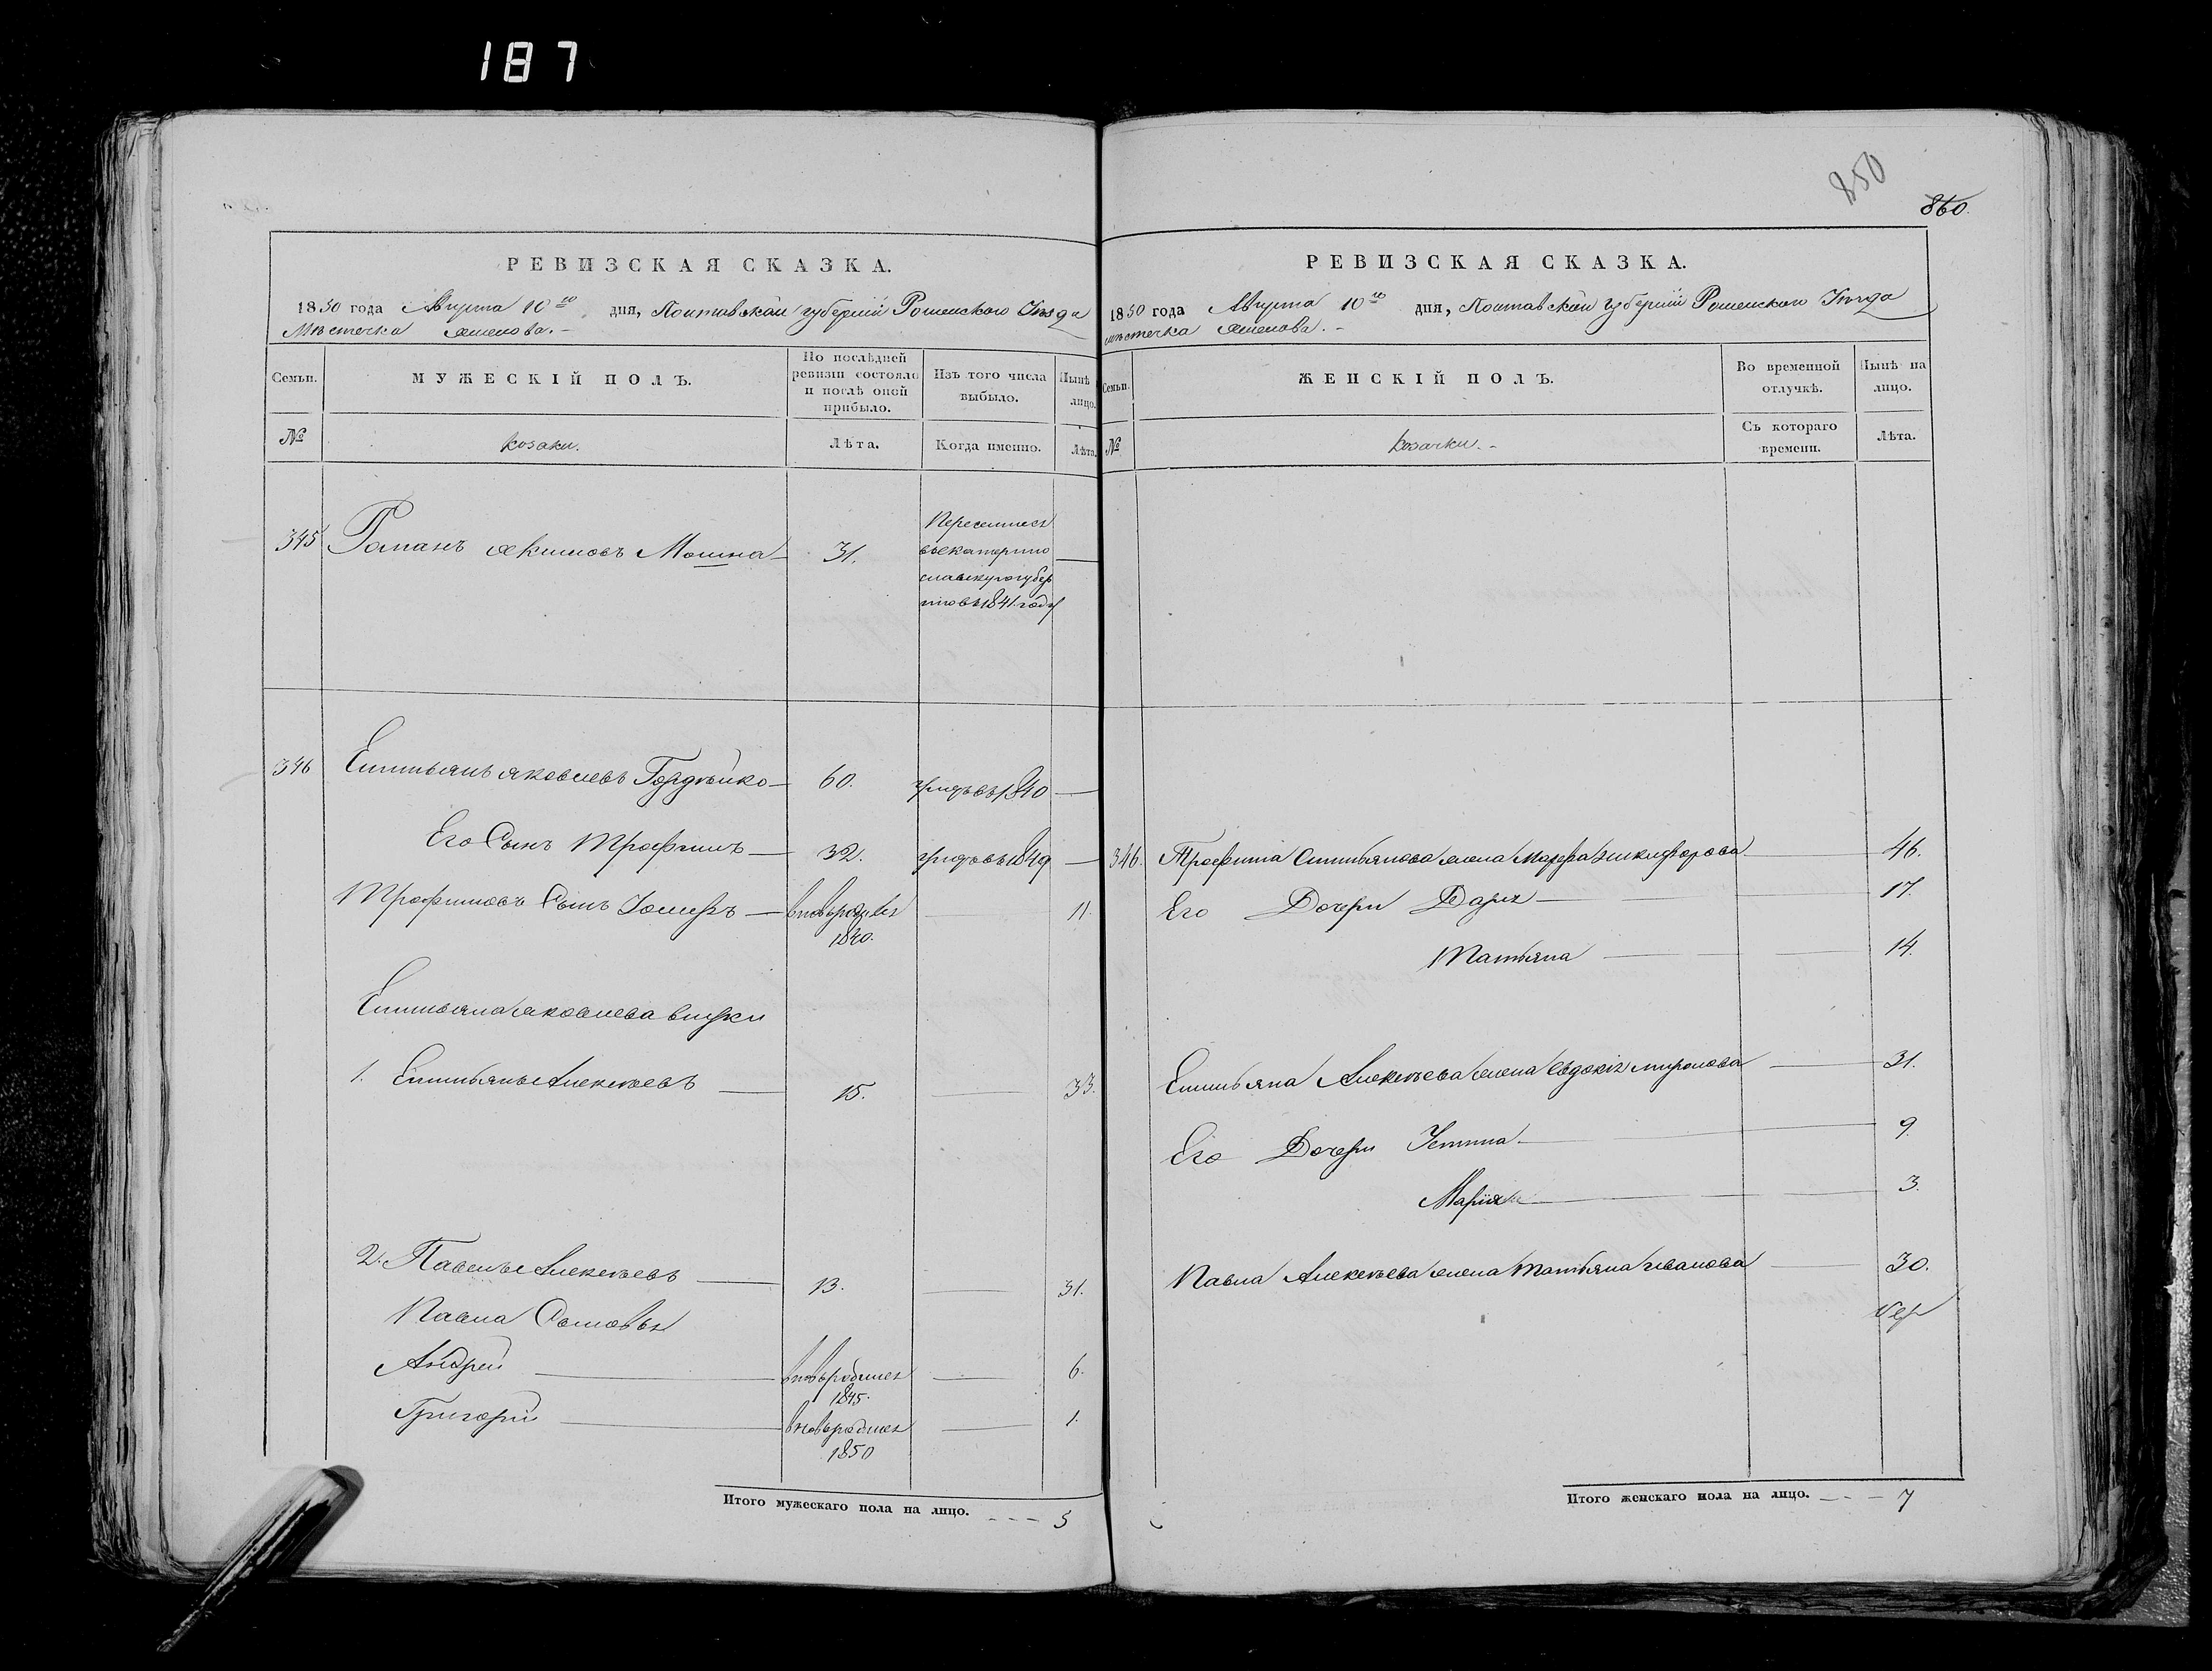 187
850
860.
РЕВИЗСКАЯ СКАЗКА.
1850 года Августа 10го дня, Полтавской губерніи Роменского Уезда
Местечка Смелова. -
Семьи.
МУЖЕСКІЙ ПОЛЪ.
По послѣдней ревизіи состояло и послѣ оной прибыло.
Изъ того числа выбыло.
Нынѣ лицо.
№
козаки.
Лѣта.
Когда именно.
Лѣта.
345
Романъ Якимовъ
31.
Переселился
въекатерино
славскуюгубер
ніювъ1841году
346
Емельянъ яковлевъ Гордѣйко
60.
умръвъ1840
Его Сынъ Трофимъ
32.
умръвъ1849
Трофимовъ Сынъ Іосифъ
вновьродился
1840.
11.
Емельяна яковлева внуки
1. Емельянъ Алексѣевъ
15.
33.
2. Павелъ Алексѣевъ
13.
31.
Павла Сыновья
Андрей
вновьродился
1845.
6.
Григорій
вновьродился
1850
1.
Итого мужескаго пола на лицо. - - - 5
РЕВИЗСКАЯ СКАЗКА.
1850 года Августа 10го дня, Полтавской губерніи Роменского Уезда
местечка Смелова. -
Семьи.
ЖЕНСКІЙ ПОЛЪ.
Во временной отлучкѣ.
Нынѣ на лицо.
№
козачки. -
Съ котораго времени.
Лѣта.
346. Трофима Емельянова жена Марфа никифорова
46.
Его Дочери Дарья
17.
Татьяна
14.
Емельяна Алексѣева жена Евдокія миронова
31.
Его Дочери Устина
9.
Марія
3.
Павла Алексѣева жена Татьяна иванова
30.
Итого женскаго пола на лицо. - - - 7